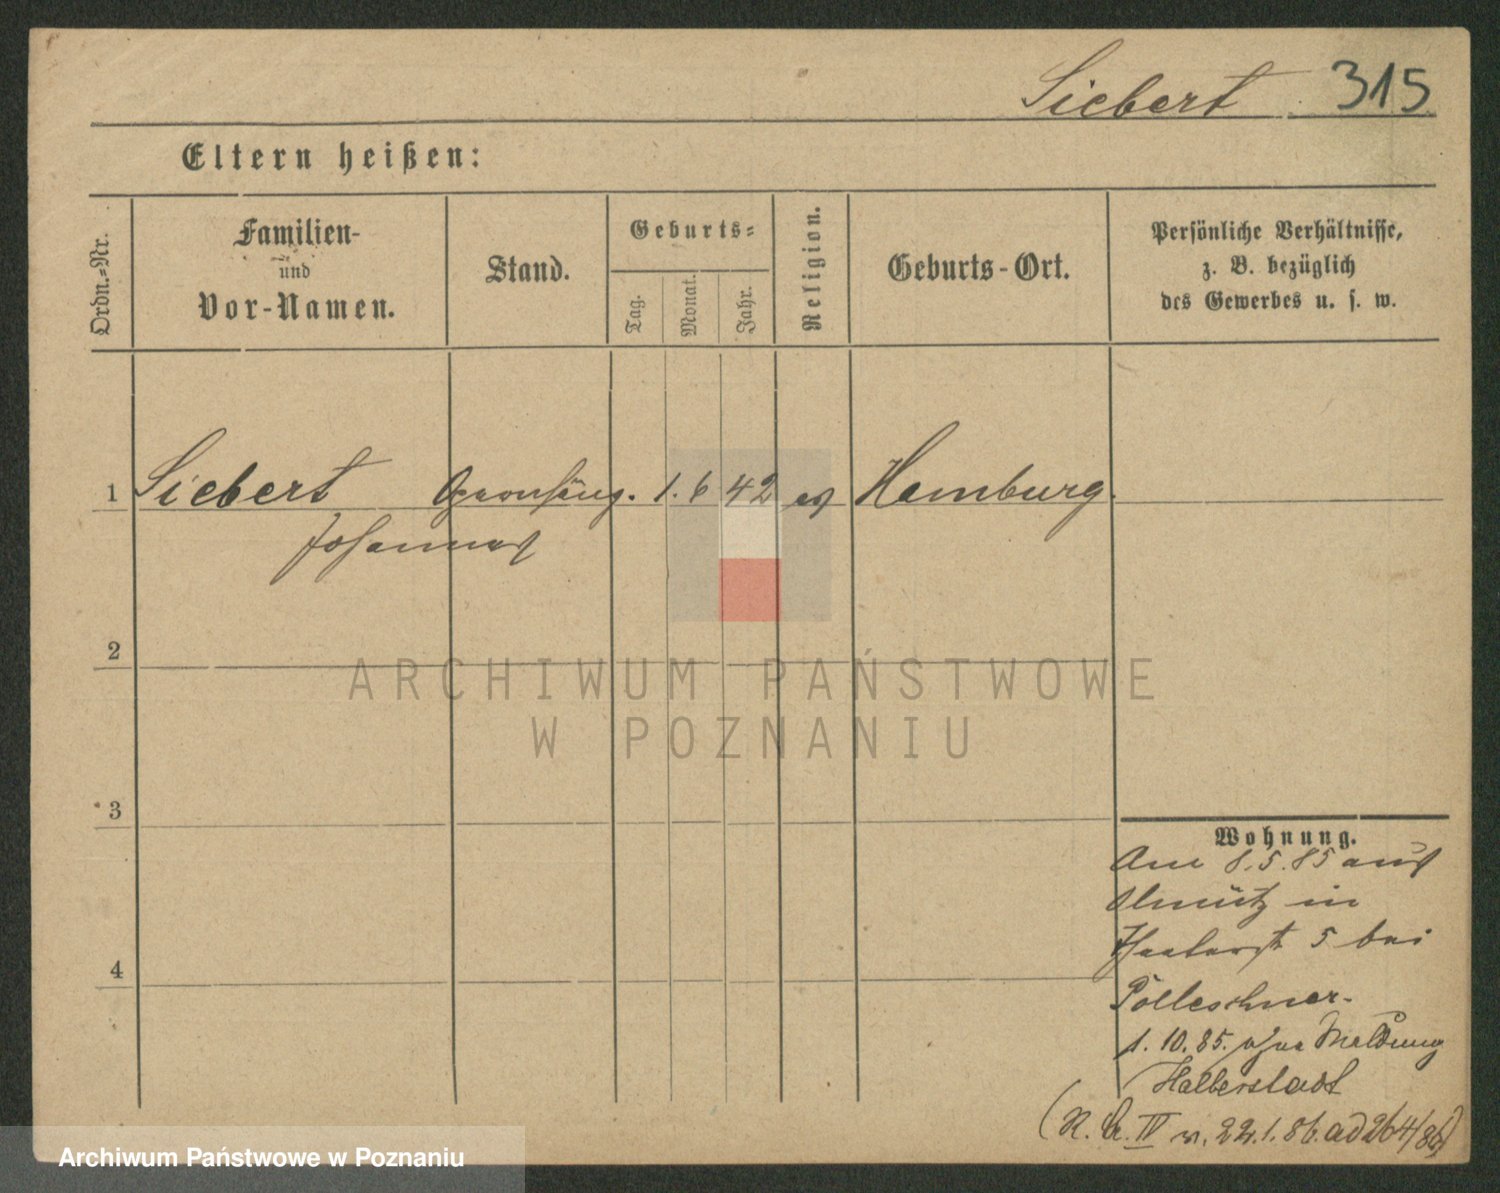 Siebert 315
Eltern heißen:
Ordn.=Nr.
Familien-
und
Vor-Namen.
Stand.
Geburts=
Tag.
Monat.
Jahr.
Religion.
Geburts-Ort.
Persönliche Verhältnisse,
z. B. bezüglich
des Gewerbes u. s. w.
1 Siebert Opernsäng. 1. 6 42 ev Hamburg.
Johannes
2
3
4
Wohnung.
Am 8.5.85 aus
Olmütz in
5 bei
Polleschner.
1. 10. 85. ohne Meldung
Halberstadt
(R. IV v. 22.1.86. ad 264/86)
ARCHIWUM PAŃSTWOWE
W POZNANIU
Archiwum Państwowe w Poznaniu